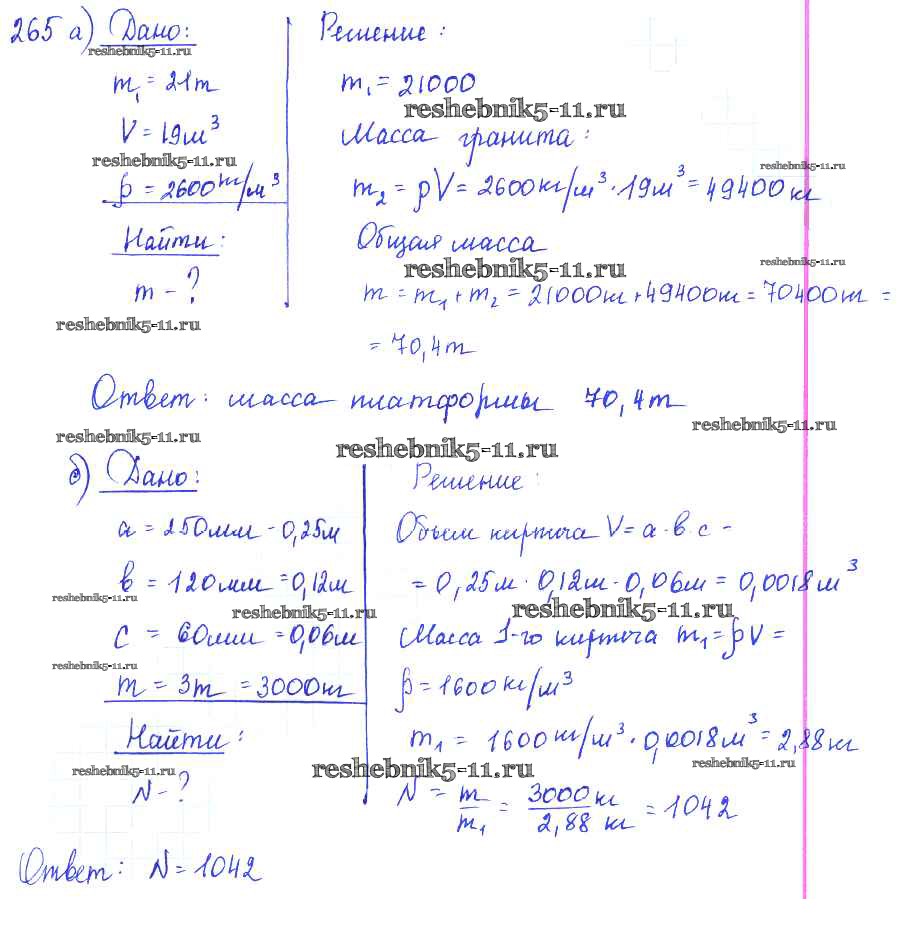 265 а) Дано:
reshebnik5-11.ru
m₁ = 21т
V = 19м³
reshebnik5-11.ru
ρ = 2600кг/м³
Найти:
m - ?
reshebnik5-11.ru
Решение:
m₁ = 21000
reshebnik5-11.ru
Масса гранита:
reshebnik5-11.ru
m₂ = ρV = 2600кг/м³ · 19м³ = 49400 кг
Общая масса
reshebnik5-11.ru
reshebnik5-11.ru
m = m₁ + m₂ = 21000т + 49400т = 70400т =
= 70,4т
Ответ: масса платформы 70,4т
reshebnik5-11.ru
reshebnik5-11.ru
reshebnik5-11.ru
б) Дано:
a = 250мм - 0,25м
в = 120мм = 0,12м
reshebnik5-11.ru
reshebnik5-11.ru
c = 60мм = 0,06м
reshebnik5-11.ru
m = 3т = 3000кг
Найти:
reshebnik5-11.ru
N - ?
Решение:
Объем кирпича V = a · в · c -
= 0,25м · 0,12м · 0,06м = 0,0018м³
reshebnik5-11.ru
Масса 1-го кирпича m₁ = ρV =
ρ = 1600кг/м³
m₁ = 1600кг/м³ · 0,0018м³ = 2,88кг
reshebnik5-11.ru
reshebnik5-11.ru
N = m/m₁ = 3000кг/2,88 кг = 1042
Ответ: N = 1042